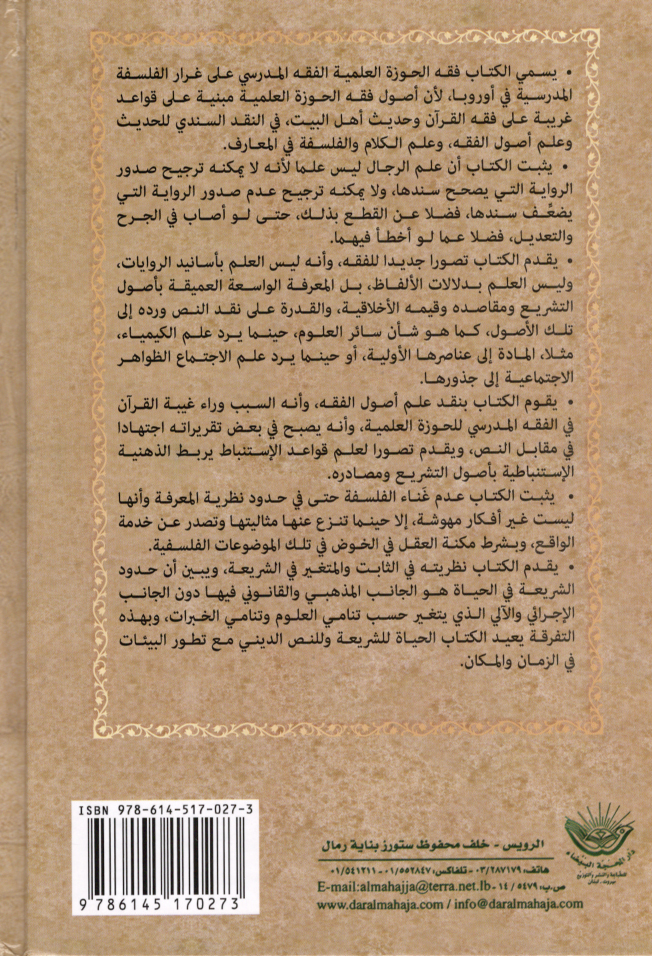 • يسمي الكتاب فقه الحوزة العلمية الفقه المدرسي على غرار الفلسفة
المدرسية في أوروبا، لأن أصول فقه الحوزة العلمية مبنية على قواعد
غريبة على فقه القرآن وحديث أهل البيت، في النقد السندي للحديث
وعلم أصول الفقه، وعلم الكلام والفلسفة في المعارف.
• يثبت الكتاب أن علم الرجال ليس علما لأنه لا يمكنه ترجيح صدور
الرواية التي يصحح سندها، ولا يمكنه ترجيح عدم صدور الرواية التي
يضعِّف سندها، فضلا عن القطع بذلك، حتى لو أصاب في الجرح
والتعديل، فضلا عما لو أخطأ فيهما.
• يقدم الكتاب تصورا جديدا للفقه، وأنه ليس العلم بأسانيد الروايات،
وليس العلم بدلالات الألفاظ، بل المعرفة الواسعة العميقة بأصول
التشريع ومقاصده وقيمه الأخلاقية، والقدرة على نقد النص ورده إلى
تلك الأصول، كما هو شأن سائر العلوم، حينما يرد علم الكيمياء،
مثلا، المادة إلى عناصرها الأولية، أو حينما يرد علم الاجتماع الظواهر
الاجتماعية إلى جذورها.
• يقوم الكتاب بنقد علم أصول الفقه، وأنه السبب وراء غيبة القرآن
في الفقه المدرسي للحوزة العلمية، وأنه يصبح في بعض تقريراته اجتهادا
في مقابل النص، ويقدم تصورا لعلم قواعد الإستنباط يربط الذهنية
الإستنباطية بأصول التشريع ومصادره.
• يثبت الكتاب عدم غَناء الفلسفة حتى في حدود نظرية المعرفة وأنها
ليست غير أفكار مهوشة، إلا حينما تنزع عنها مثاليتها وتصدر عن خدمة
الواقع، وبشرط مكنة العقل في الخوض في تلك الموضوعات الفلسفية.
• يقدم الكتاب نظريته في الثابت والمتغير في الشريعة، ويبين أن حدود
الشريعة في الحياة هو الجانب المذهبي والقانوني فيها دون الجانب
الإجرائي والآلي الذي يتغير حسب تنامي العلوم وتنامي الخبرات، وبهذه
التفرقة يعيد الكتاب الحياة للشريعة وللنص الديني مع تطور البيئات
في الزمان والمكان.
ISBN 978-614-517-027-3
9 786145 170273
الرويس - خلف محفوظ ستورز بناية رمال
هاتف: ٠٣/٢٨٧١٧٩ - تلفاكس: ٠١/٥٥٢٨٤٧ - ٠١/٥٤١٢١١
ص.ب: ١٤/٥٤٧٩ - E-mail:almahajja@terra.net.lb
www.daralmahaja.com / info@daralmahaja.com
دار المحجة البيضاء
للطباعة والنشر والتوزيع
بيروت - لبنان